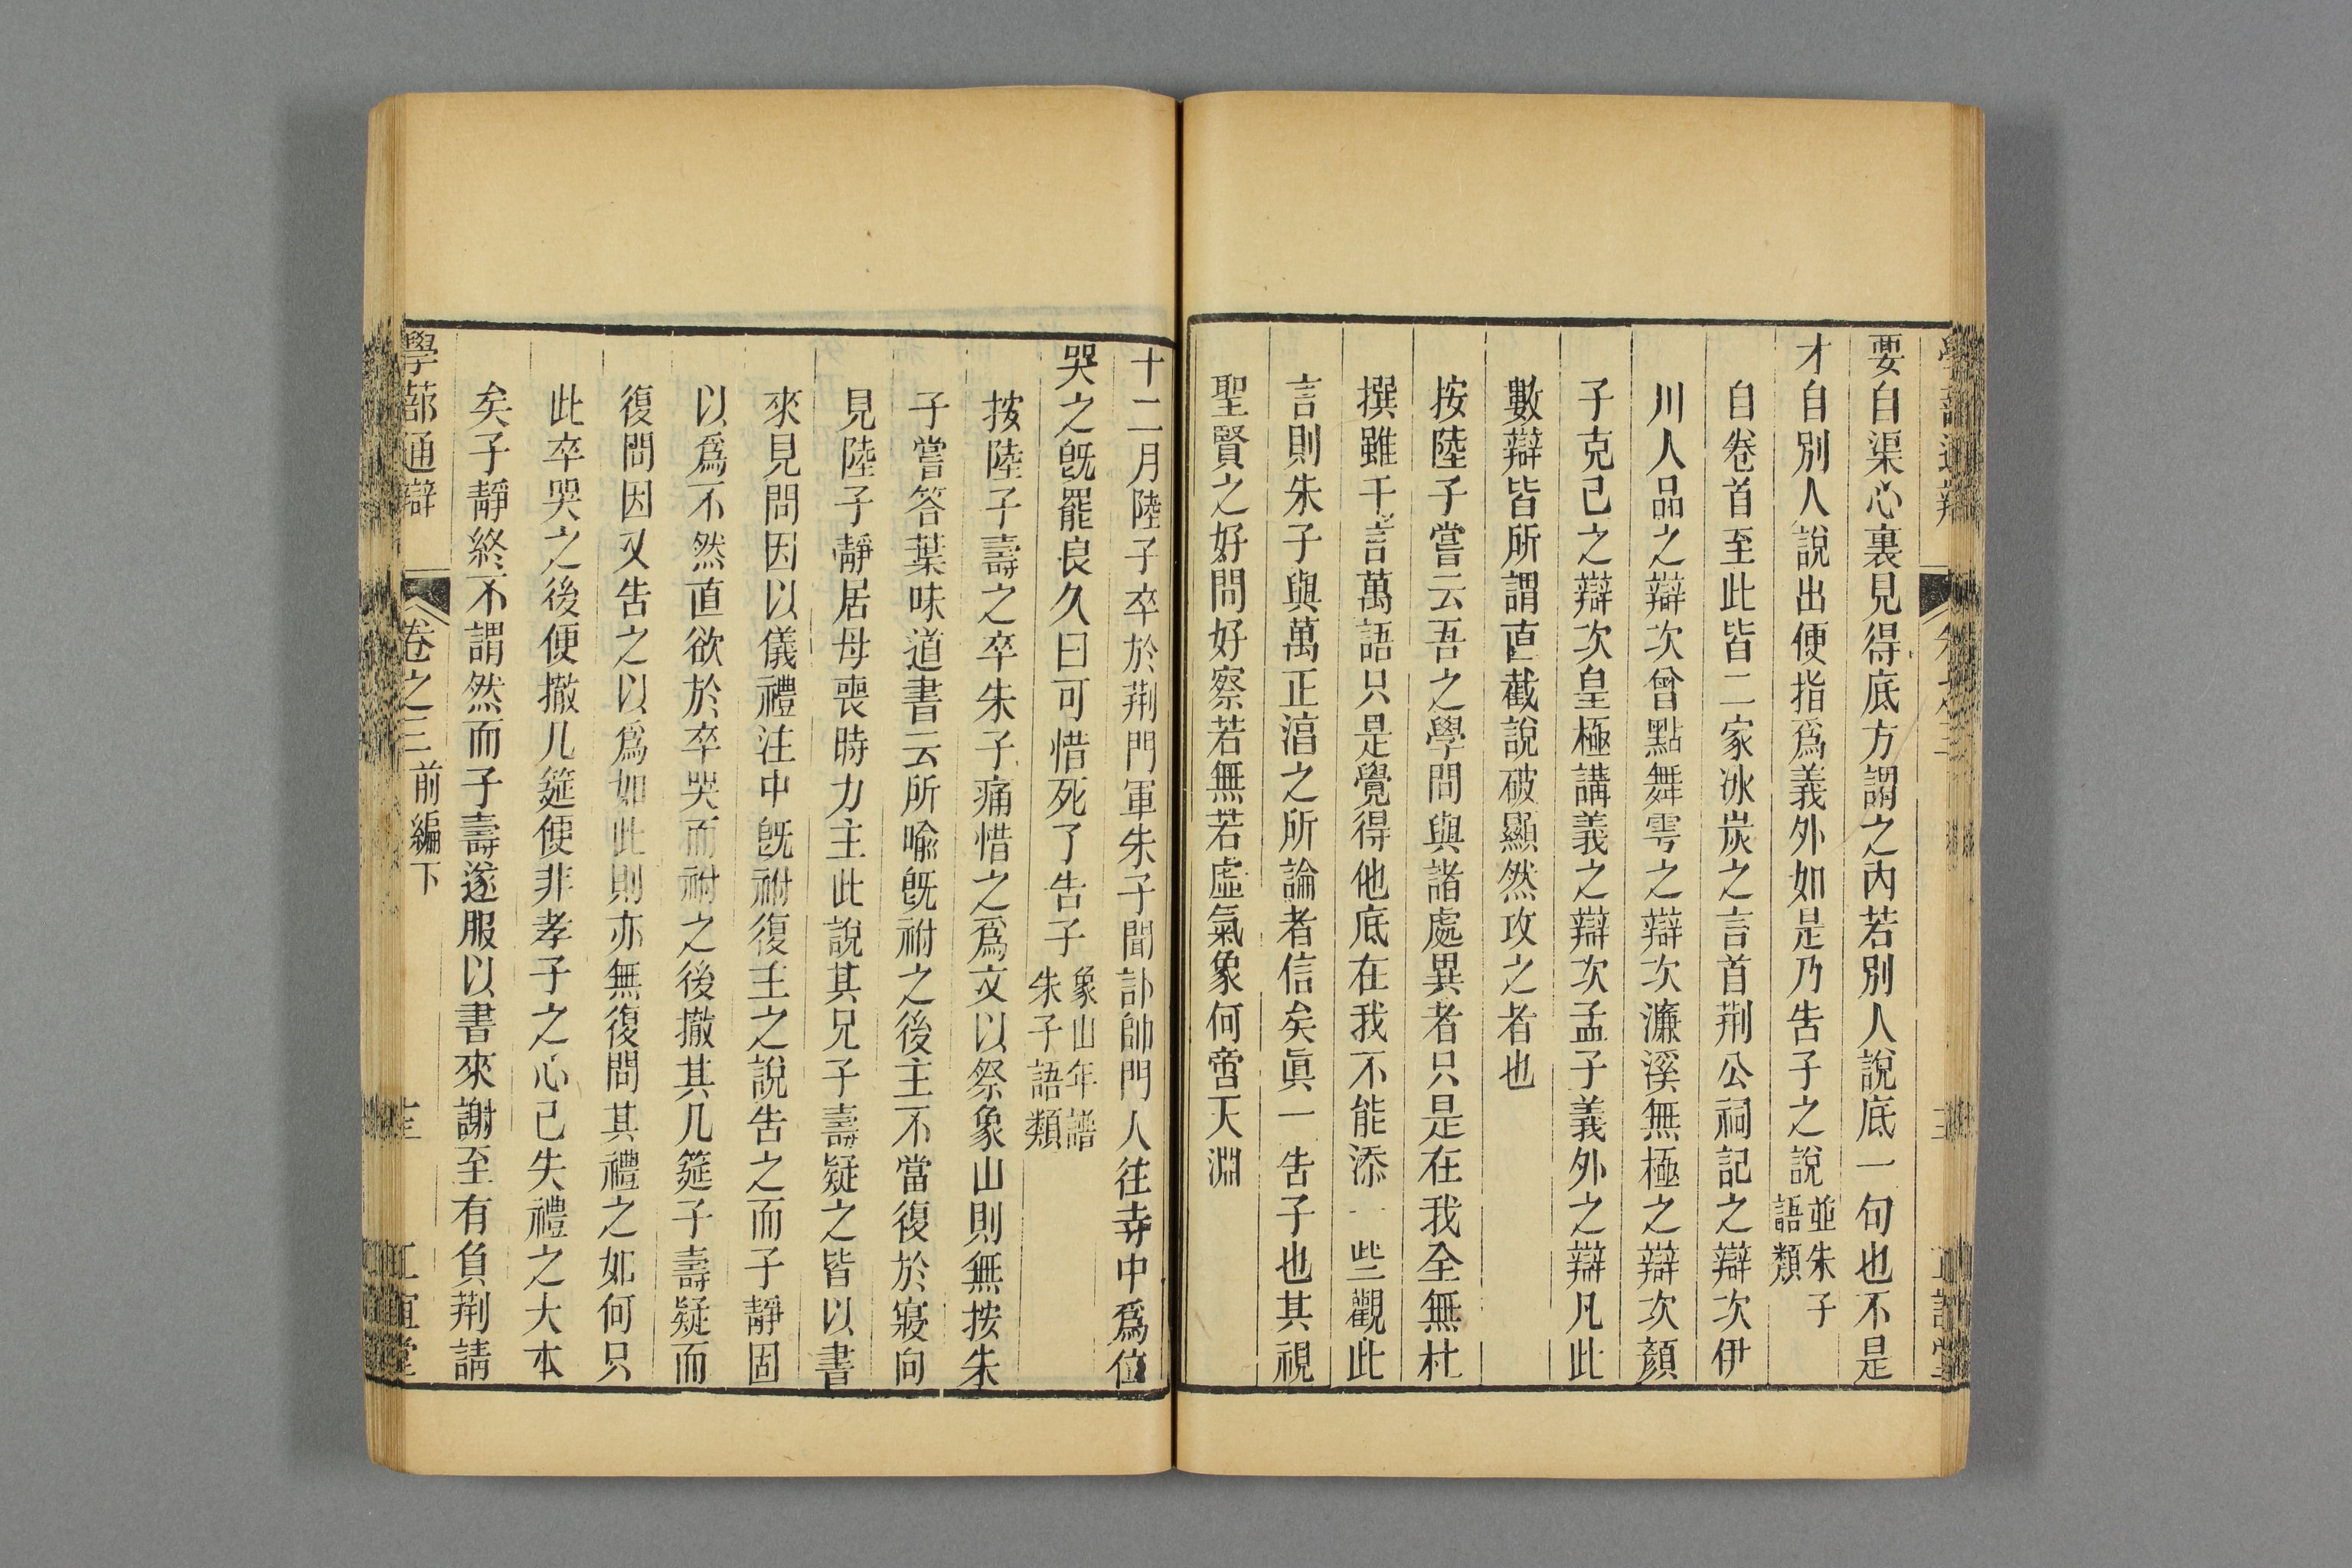 要自渠心裏見得底方謂之內若別人說底一句也不是
才自別人說出便指爲義外如是乃告子之說並朱子
語類
自卷首至此皆二家氷炭之言首荆公祠記之辯次伊
川人品之辯次曾點舞雩之辯次濂溪無極之辯次顏
子克己之辯次皇極講義之辯次孟子義外之辯凡此
數辯皆所謂直截說破顯然攻之者也
按陸子嘗云吾之學問與諸處異者只是在我全無杜
撰雖千言萬語只是覺得他底在我不能添一些觀此
言則朱子與萬正淳之所論者信矣眞一告子也其視
聖賢之好問好察若無若虛氣象何啻天淵
十二月陸子卒於荆門軍朱子聞訃帥門人往寺中爲位
哭之旣罷良久曰可惜死了告子象山年譜
朱子語類
按陸子壽之卒朱子痛惜之爲文以祭象山則無按朱
子嘗答葉味道書云所喻旣祔之後主不當復於寢向
見陸子靜居母喪時力主此說其兄子壽疑之皆以書
來見問因以儀禮注中旣祔復主之說告之而子靜固
以爲不然直欲於卒哭而祔之後撤其几筵子壽疑而
復問因又告之以爲如此則亦無復問其禮之如何只
此卒哭之後便撤几筵便非孝子之心已失禮之大本
矣子靜終不謂然而子壽遂服以書來謝至有負荆請
學蔀通辯
卷之三前編下